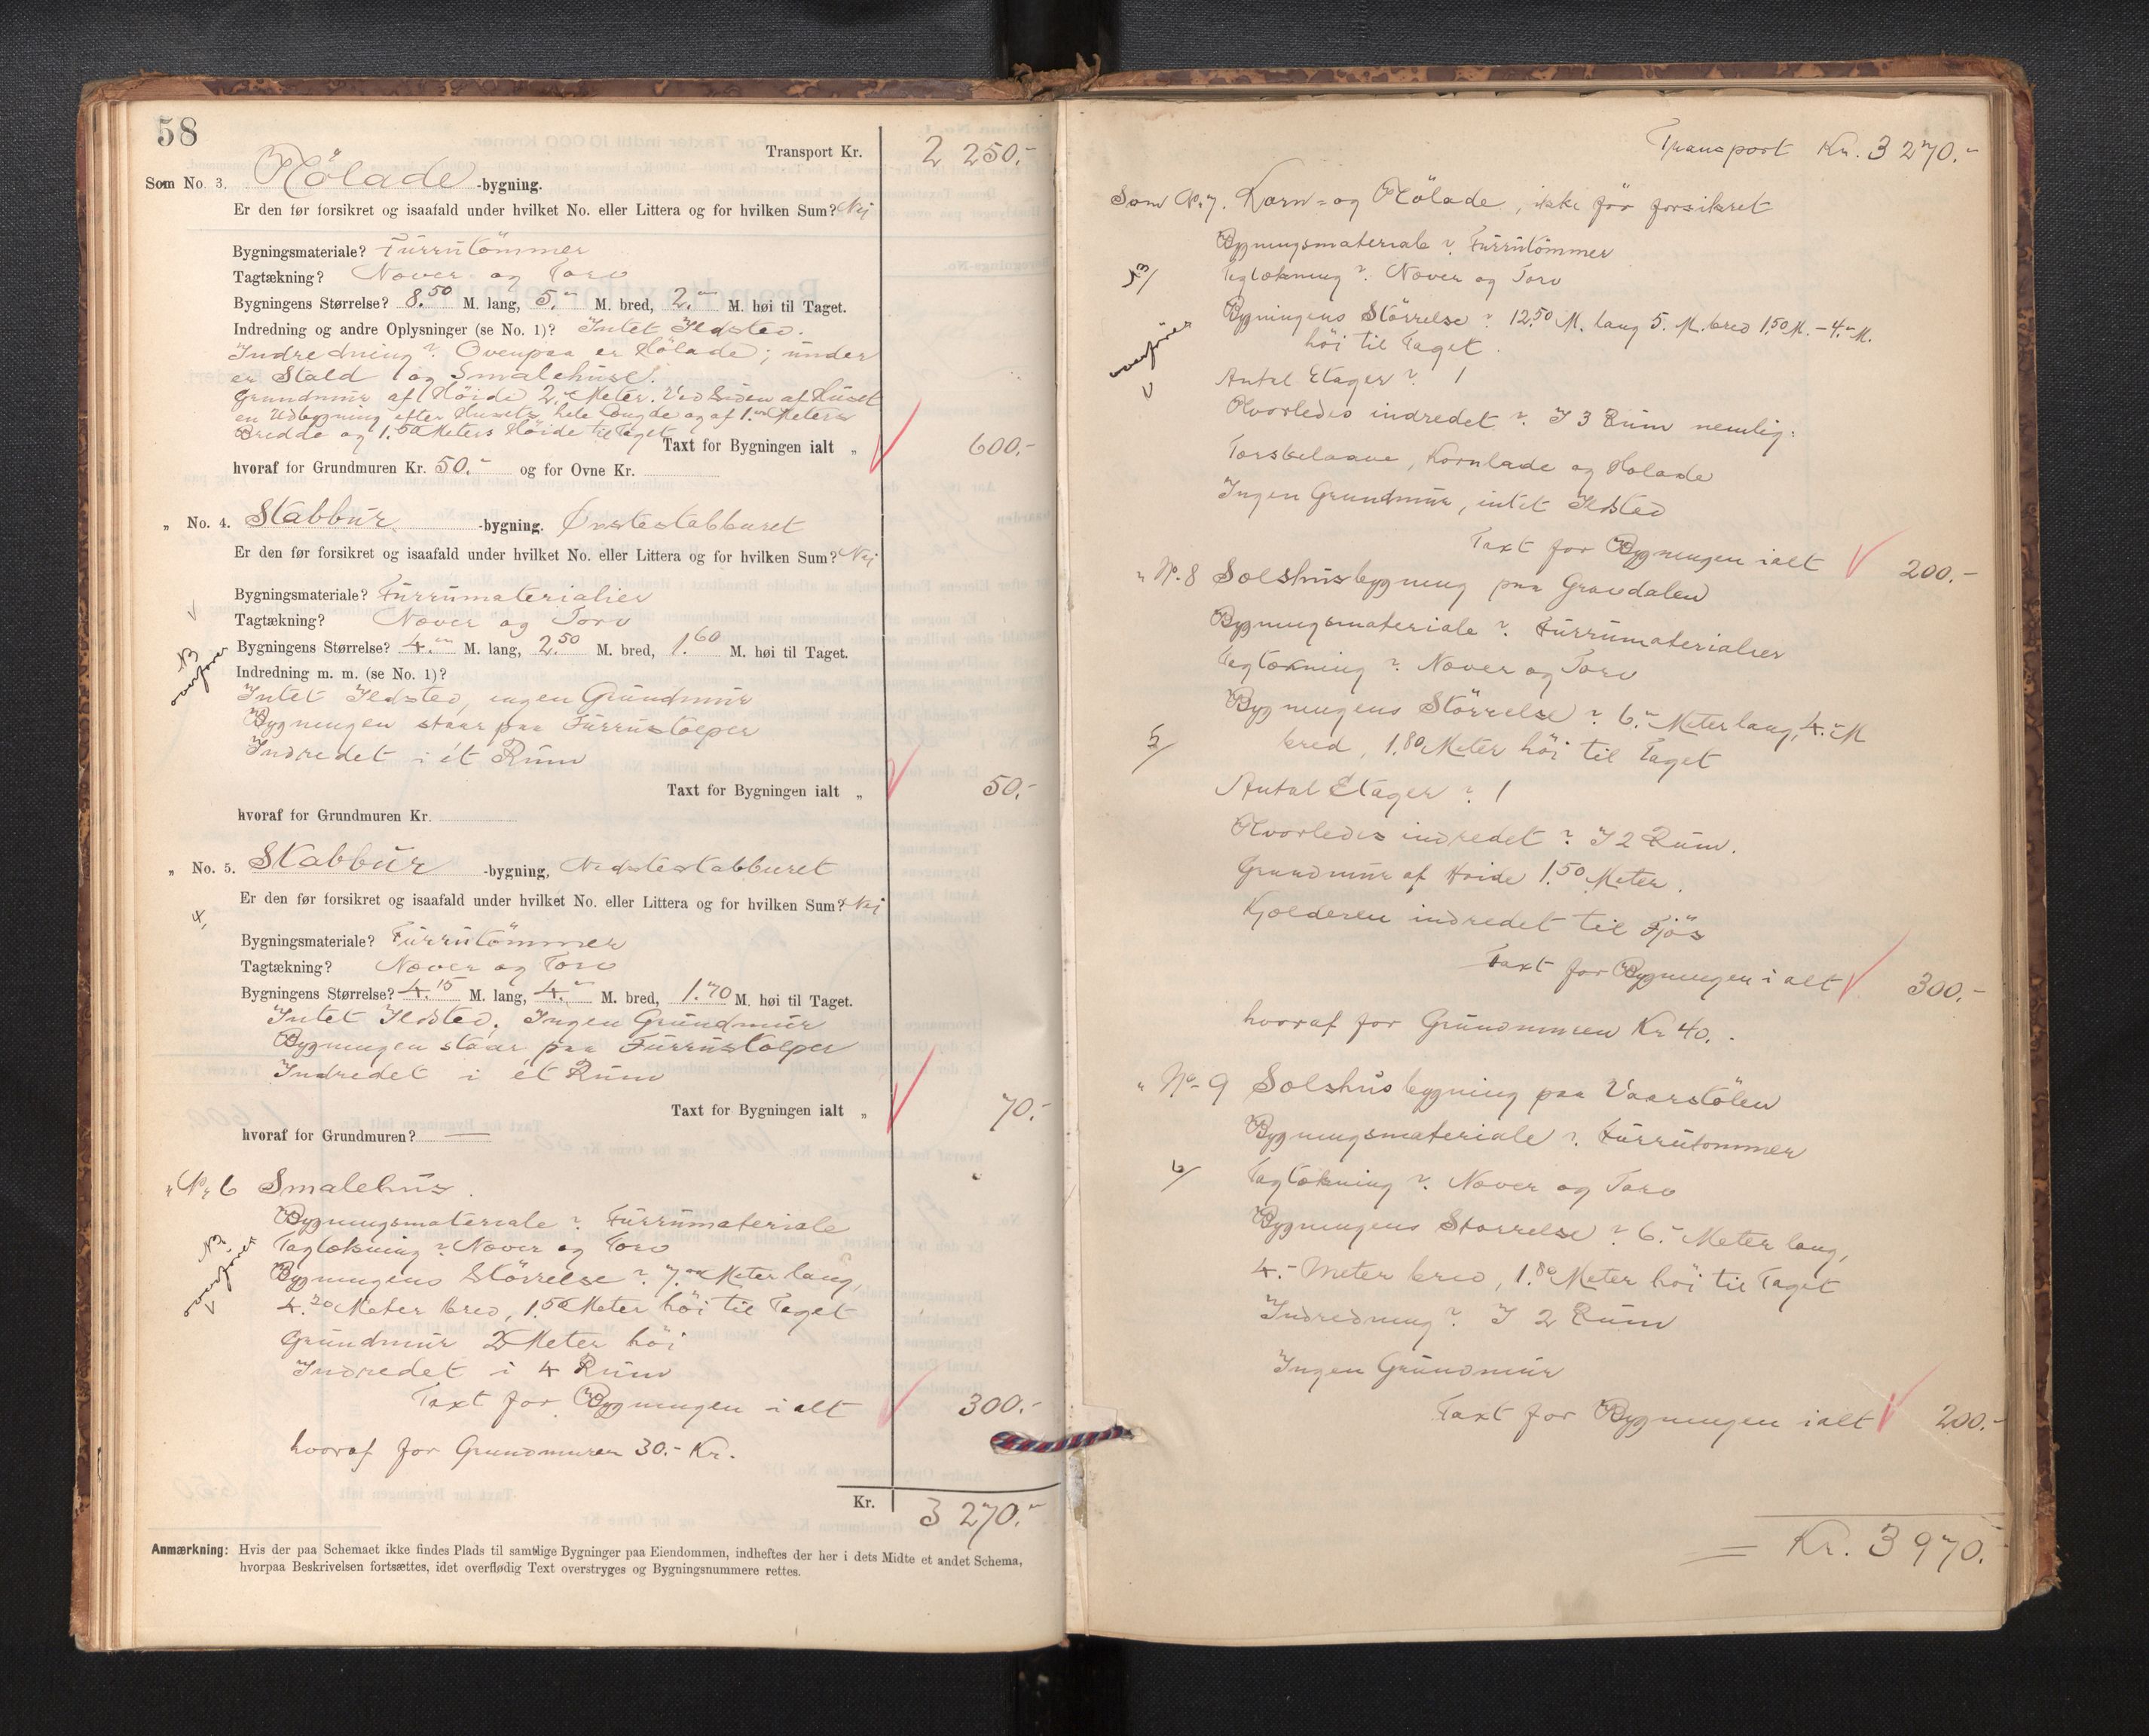 58
Transport Kr. 2 250.-
Som No. 3. Hölade -bygning.
Er den før forsikret og isaafald under hvilket No. eller Littera og for hvilken Sum? Nei
Bygningsmateriale? Furrutömmer
Tagtækning? Næver og Torv
Bygningens Størrelse? 8.50 M. lang, 5.- M. bred, 2.- M. høi til Taget.
Indredning og andre Oplysninger (se No. 1)? Intet Ildsted.
Indredning? Ovenpaa er Hölade; under
er Stald og Smalehus.
Grundmur af Höide 2.- Meter. Ved Siden af Huset
en Udbygning efter Husets hele Længde og af 1.- Meters
Bredde og 1.50 Meters Höide til Taget
Taxt for Bygningen ialt „ 600.-
hvoraf for Grundmuren Kr. 50.- og for Ovne Kr.
„ No. 4. Stabbur -bygning. Øvstestabburet
Er den før forsikret og isaafald under hvilket No. eller Littera og for hvilken Sum? Nei
Bygningsmateriale? Furrumaterialier
Tagtækning? Næver og Torv
Bygningens Størrelse? 4.- M. lang, 2.50 M. bred, 1.60 M. høi til Taget.
NB overføres
Indredning m. m. (se No. 1)?
Intet Ildsted, ingen Grundmur
Bygningen staar paa Furrustolper
Indredet i ét Rum
Taxt for Bygningen ialt „ 50.-
hvoraf for Grundmuren Kr.
„ No. 5. Stabbur -bygning, Nedstestabburet
Er den før forsikret og isaafald under hvilket No. eller Littera og for hvilken Sum? Nei
4,
Bygningsmateriale? Furrutömmer
Tagtækning? Næver og Torv
Bygningens Størrelse? 4.15 M. lang, 4.- M. bred, 1.70 M. høi til Taget.
Intet Ildsted. Ingen Grundmur
Bygningen staar paa Furrustolper
Indredet i ét Rum
Taxt for Bygningen ialt „ 70.-
hvoraf for Grundmuren? —
„ No. 6 Smalehus.
Bygningsmateriale? Furrumateriale
Tagtækning? Næver og Torv
NB. overføres
Bygningens Størrelse? 7.- Meter lang,
4.20 Meter bred, 1.50 Meter höi til Taget
Grundmur 2 Meter höi
Indredet i 4 Rum
Taxt for Bygningen ialt 300.-
hvoraf for Grundmuren 30.- Kr.
Kr. 3 270.-
Anmærkning: Hvis der paa Schemaet ikke findes Plads til samtlige Bygninger paa Eiendommen, indheftes der her i dets Midte et andet Schema,
hvorpaa Beskrivelsen fortsættes, idet overflødig Text overstryges og Bygningsnummere rettes.
Transport Kr. 3 270.-
Som No. 7. Korn- og Hölade, ikke för forsikret
Bygningsmateriale? Furrutömmer
Tagtækning? Næver og Torv
Bygningens Störrelse? 12.50 M. lang 5. M. bred 1.50 M. - 4.- M.
overføres
höi til Taget.
Antal Etager? 1
Hvorledes indredet? I 3 Rum nemlig:
Torskelaave, Kornlade og Hölade
Ingen Grundmur, intet Ildsted
Taxt for Bygningen ialt 200.-
„ No. 8 Selshusbygning paa Gravdalen
Bygningsmateriale? Furrumaterialier
Tagtækning? Næver og Torv
Bygningens Störrelse? 6.- Meter lang, 4.- M
5/
bred, 1.80 Meter höi til Taget
Antal Etager? 1
Hvorledes indredet? I 2 Rum.
Grundmur af Höide 1.50 Meter.
Kjælderen indredet til Fjös
Taxt for Bygningen i alt 300.-
hvoraf for Grundmuren Kr 40.-
„ No. 9 Selshusbygning paa Vaarstölen
Bygningsmateriale? Furrutömmer
6/
Tagtækning? Næver og Torv
Bygningens Størrelse? 6.- Meter lang,
4.- Meter bred, 1.80 Meter höi til Taget
Indredning? I 2 Rum
Ingen Grundmur
Taxt for Bygningen ialt 200.-
= Kr. 3 970.